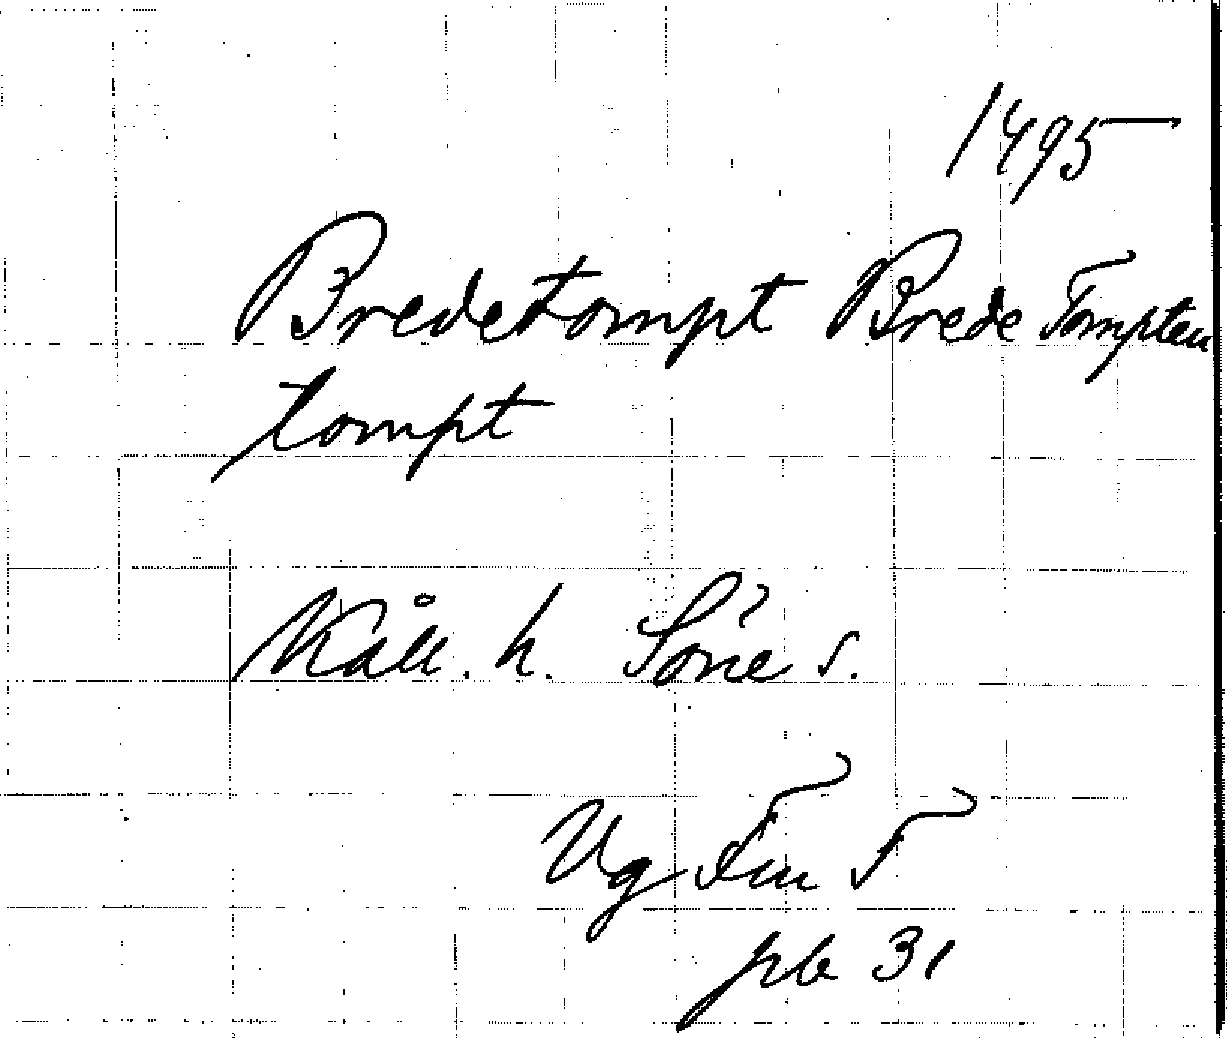 1495
Bredetompt Brede Tompten
tompt
Kåll. h. Sörie s.
Vg Fm T
pb 31